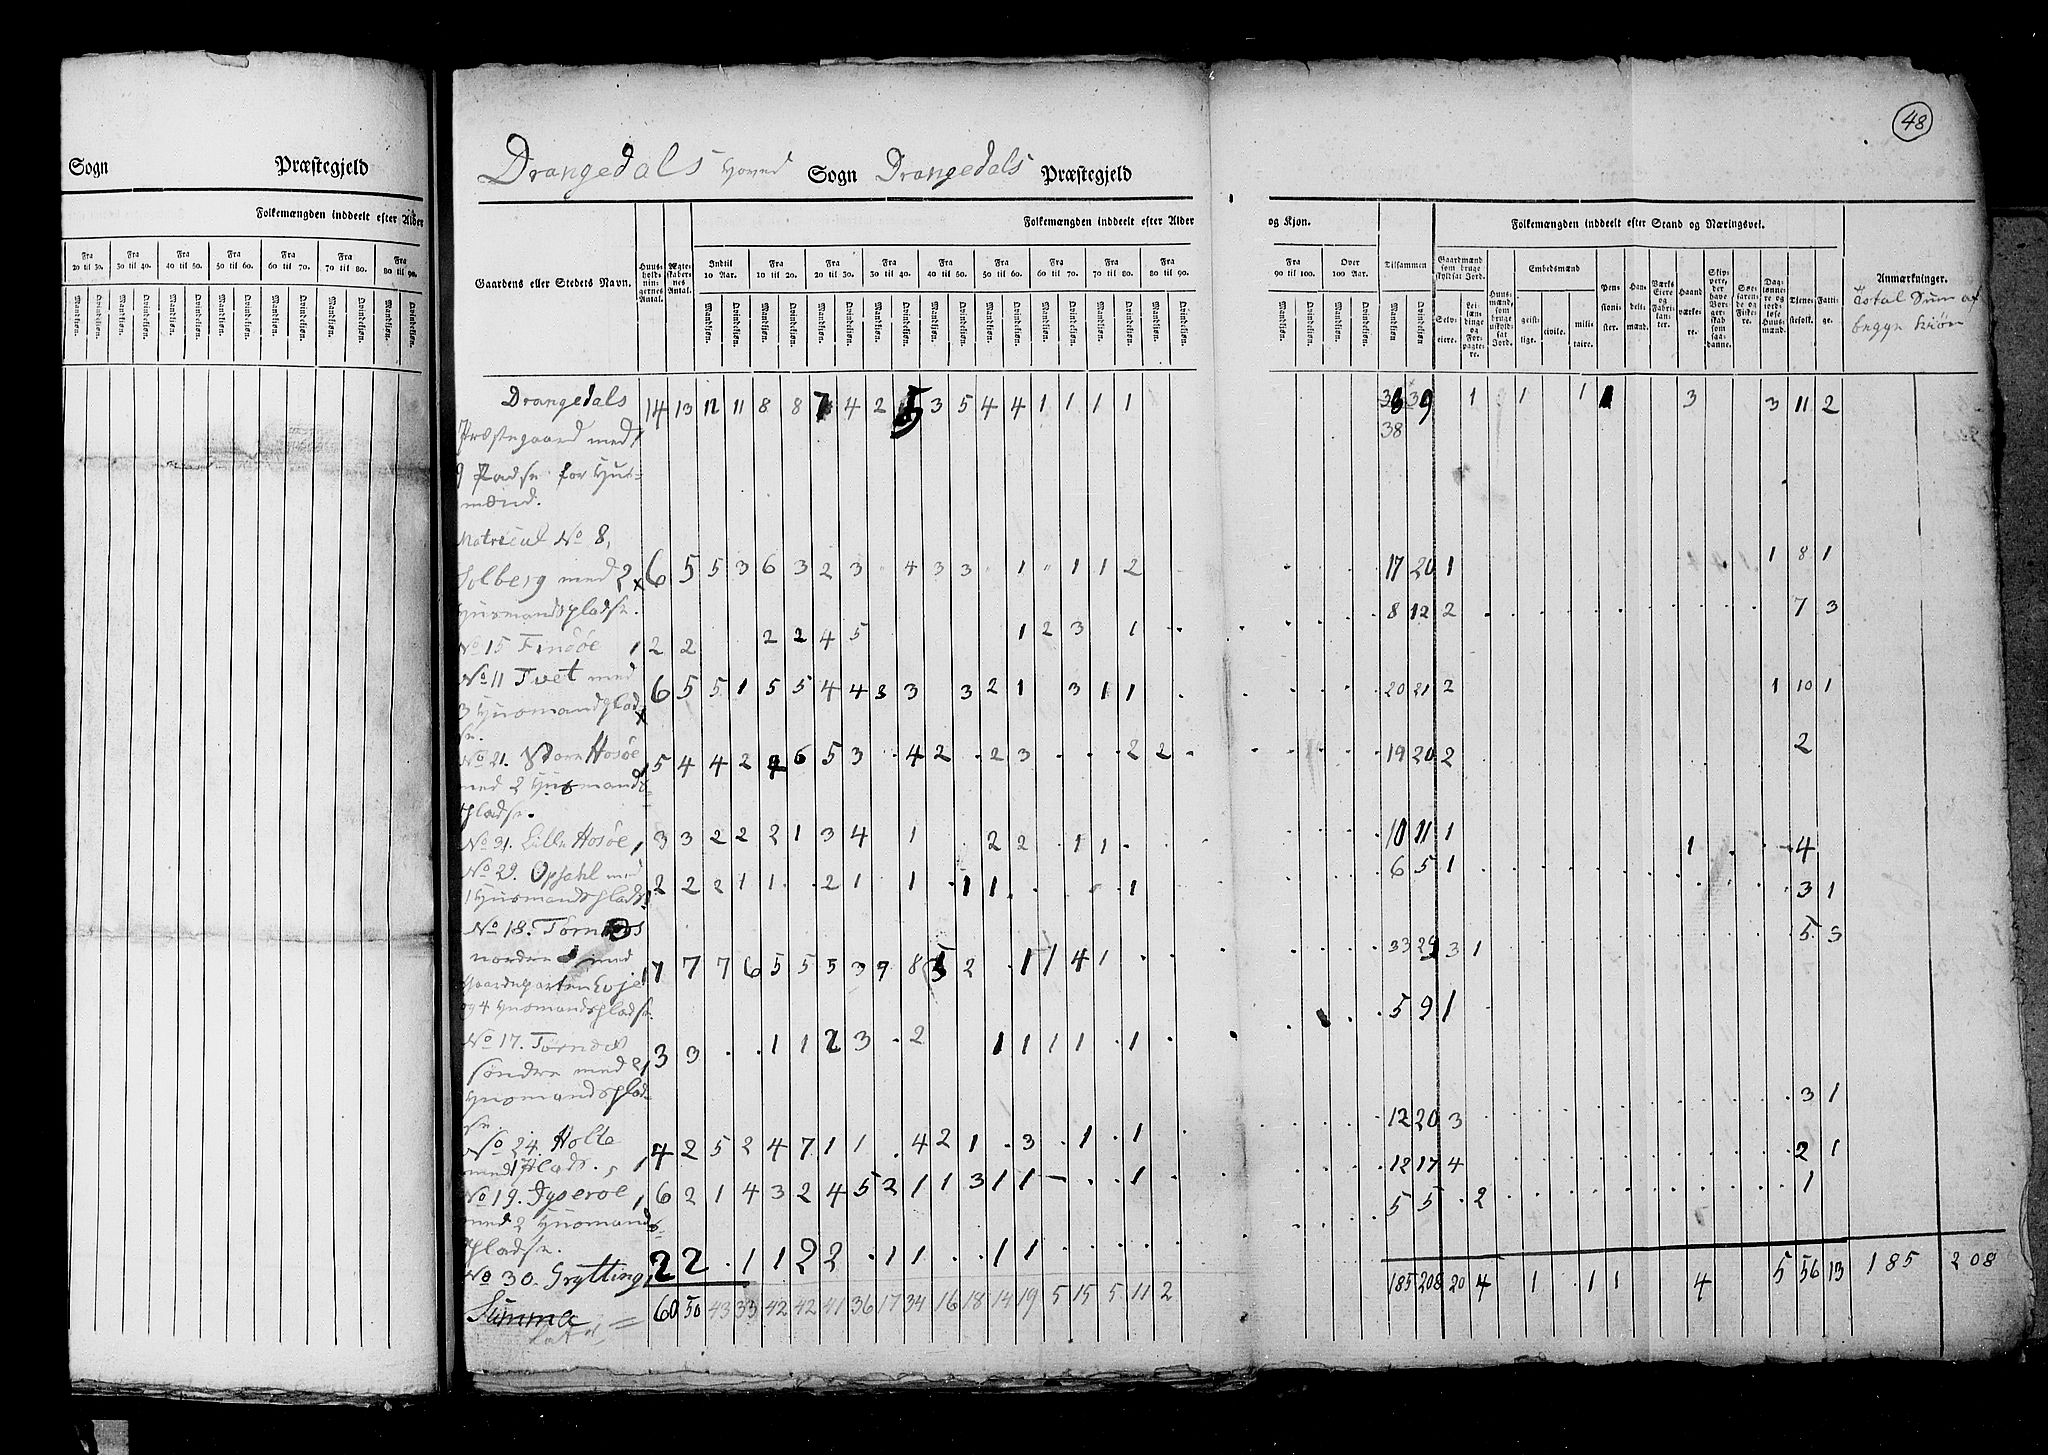 48
Sogn Præstegjeld
Folkemængden inddeelt efter Alder
Fra 20 til 30. Fra 30 til 40. Fra 40 til 50. Fra 50 til 60. Fra 60 til 70. Fra 70 til 80. Fra 80 til 90.
Mandkjøn. Qvindekjøn. Mandkjøn. Qvindekjøn. Mandkjøn. Qvindekjøn. Mandkjøn. Qvindekjøn. Mandkjøn. Qvindekjøn. Mandkjøn. Qvindekjøn. Mandkjøn. Qvindekjøn.
Drangedals Hoved Sogn Drangedals Præstegjeld
Gaardens eller Stedets Navn. Huusholdningernes Antal. Ægteskabernes Antal. Folkemængden inddeelt efter Alder og Kjøn. Tilsammen Folkemængden inddeelt efter Stand og Næringsvei. Anmærkninger.
Indtil 10 Aar. Fra 10 til 20. Fra 20 til 30. Fra 30 til 40. Fra 40 til 50. Fra 50 til 60. Fra 60 til 70. Fra 70 til 80. Fra 80 til 90. Fra 90 til 100. Over 100 Aar.
Gaardmænd som bruge skyldsat Jord. Selveiere. Leilændinge og Forpagtere. Huusmænd, som bruge uskyldsat Jord. Embedsmænd geistlige. civile. militaire. Pensionister. Handelsmænd. Værks Eiere og Fabrikanter. Haandværkere. Skippere, der have Borgerskab som saadanne. Søefarende og Fiskere. Daglønnere og jordløse Huusmænd. Tjenestefolk. Fattige.
Total Sum af
begge Kiøn
Drangedals 14 13 12 11 8 8 7 4 2 5 3 5 4 4 1 1 1 1 39 1 1 1 1 3 3 11 2
38
Præstegaard med
9 Pladse for Huus=
mænd.
Matricul No 8,
Solberg med 2 6 5 5 3 6 3 2 3 4 3 3 1 1 1 2 17 20 1 1 8 1
Huusmandspladse.
No 15 Finsöe 2 2 2 2 4 5 1 2 3 1 8 12 2 7 3
No 11 Tvet med
3 Huusmandsplad 6 5 5 1 5 5 4 4 3 3 3 2 1 3 1 1 20 21 2 1 10 1
se.
No 21. Store Hosöe 5 4 4 2 4 6 5 3 4 2 2 3 2 2 19 20 2 2
med 2 Huusmands
pladse.
No 31. Lille Hosöe 3 3 2 2 2 1 3 4 1 2 2 1 1 10 11 1 1 4
No 29. Opsahl med
1 Huusmandsplads 2 2 2 1 1 2 1 1 1 1 1 6 5 1 3 1
No 18. Tørnes
nordre med 7 7 7 6 5 5 5 3 9 8 5 2 1 1 4 1 33 29 3 1 5 3
Gaardeparten Evje
og 4 Huusmandspladse.
No 17. Törnes
söndre med 2 3 3 1 1 2 3 2 1 1 1 1 1 5 9 1
Huusmandsplad
se.
No 24. Holte 4 2 5 2 4 7 1 1 4 2 1 3 1 1 12 20 3 3 1
med 1 Plads.
No 19. Dyseröe 6 2 1 4 3 2 4 5 2 1 1 3 1 1 1 12 17 4 2 1
med 2 Huusmands
pladse.
No 30. Grytting 2 2 1 1 2 2 1 1 1 1 5 5 2 1
Summa 60 50 43 33 42 42 41 36 17 34 16 18 14 19 5 15 5 11 2 185 208 20 4 1 1 1 4 5 56 13 185 208